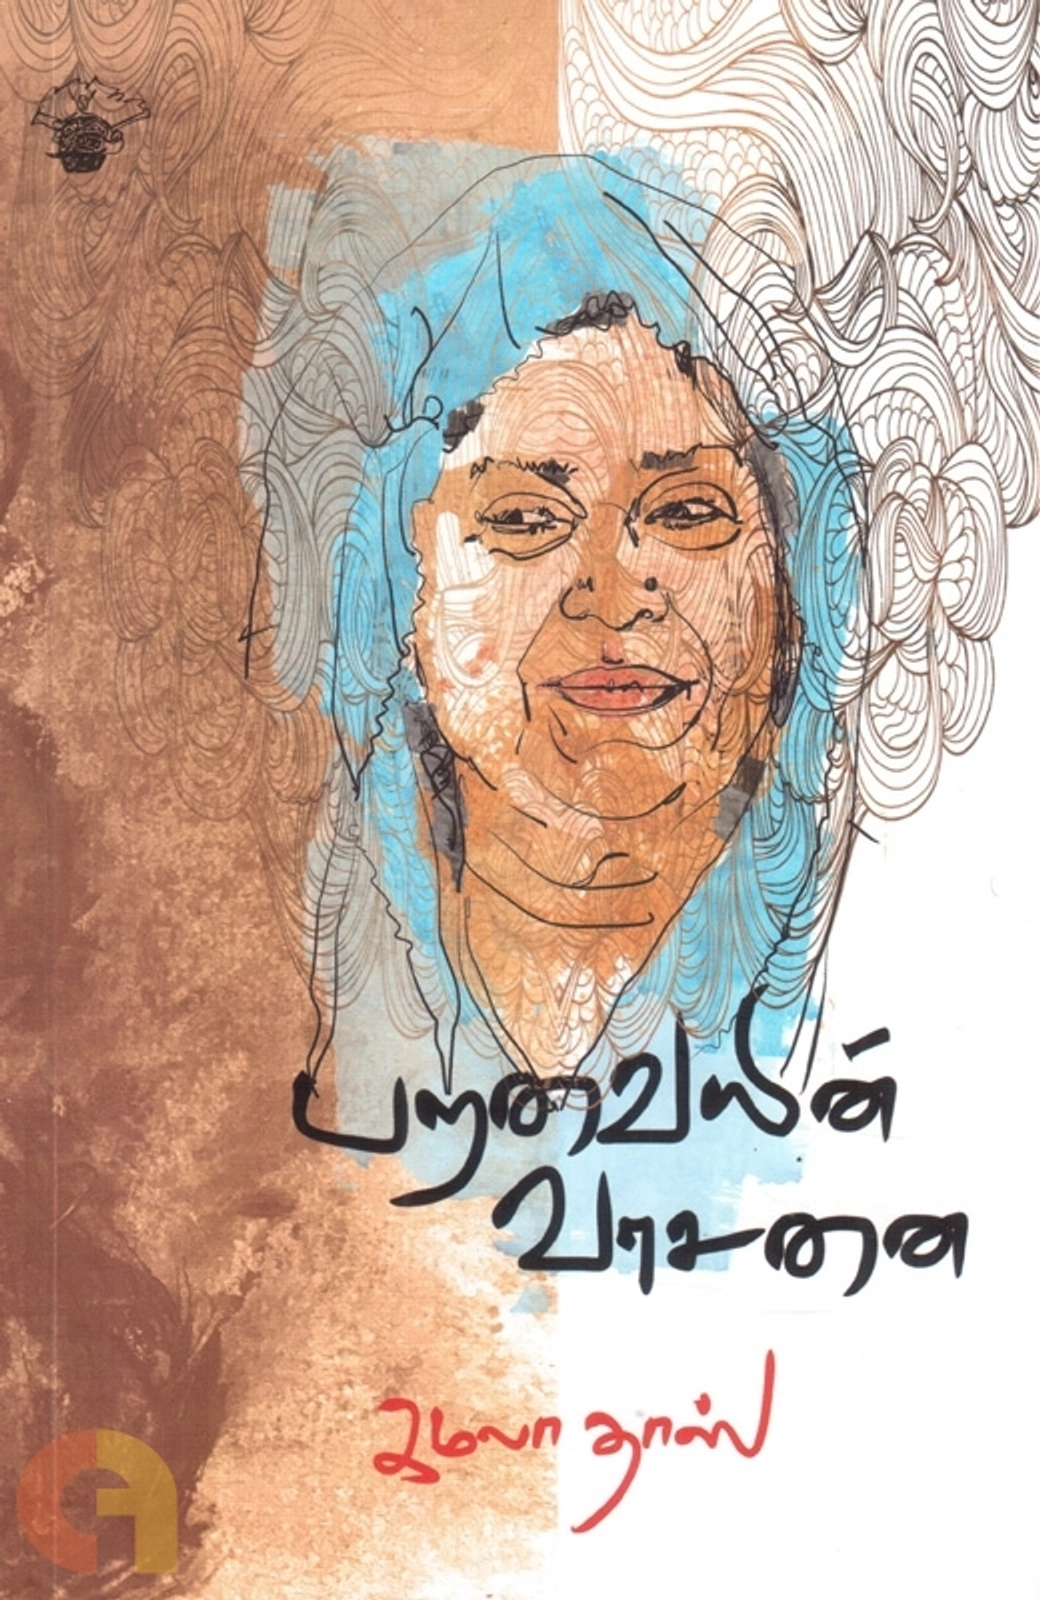 பறவையின்
வாசனை
கமலா தாஸ்